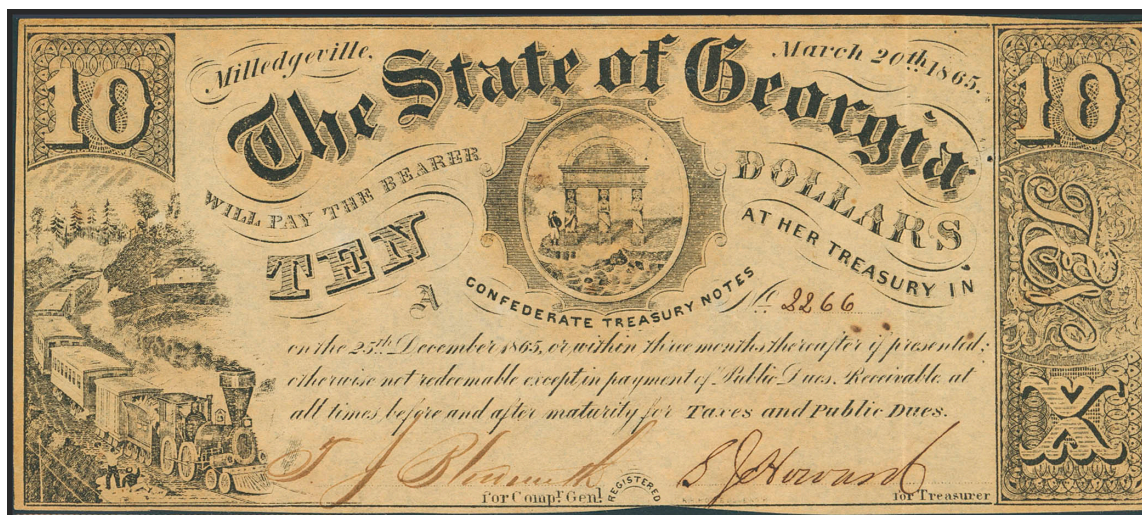 10
Milledgeville,
March 20th 1865.
10
The State of Georgia
WILL PAY THE BEARER
TEN
DOLLARS
AT HER TREASURY IN
CONFEDERATE TREASURY NOTES
A
No. 2266
on the 25th December 1865, or within three months thereafter if presented;
otherwise not redeemable except in payment of Public Dues. Receivable at
all times before and after maturity for Taxes and Public Dues.
for Compt Genl
REGISTERED
S J Howard
for Treasurer
X